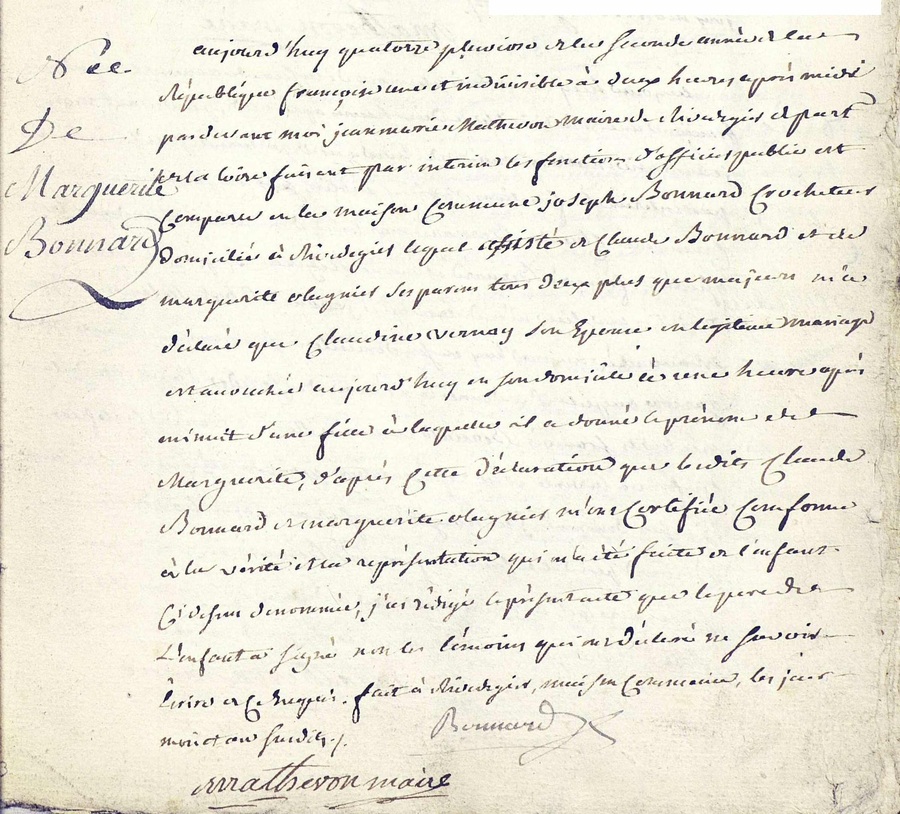 Née
De
Marguerite
Bonnard
aujourd'huy quatorze pluviose de la seconde année de la
République françoise une et indivisible à deux heures après midi
pardevant moi jean marie Mathevon maire de Rivedegiés depart
de la loire faisant par interim les fonctions d'officier public est
Comparu en la maison Commune joseph Bonnard Crocheteur
domicilié à Rivedegiés lequel assisté de Claude Bonnard et de
marguerite olagnier ses parens tous deux plus que majeurs m'a
déclaré que Claudine vernay son Epouse en légitime mariage
est accouchée aujourd'huy en son domicile à une heure après
minuit d'une fille à laquelle il a donné le prénom de
Marguerite, d'après cette déclaration que lesdits Claude
Bonnard et marguerite olagnier m'ont Certifiée Conforme
à la vérité et la représentation qui m'a été faite de l'enfant
Cidessus denommée, j'ai rédigé le présent acte que le pere de
L'enfant a signé non les témoins qui ont déclaré ne savoir
Ecrire de ce requis. fait à Rivedegiés, maison Commune, les jour
mois et an susdits.
Bonnard
Mathevon maire